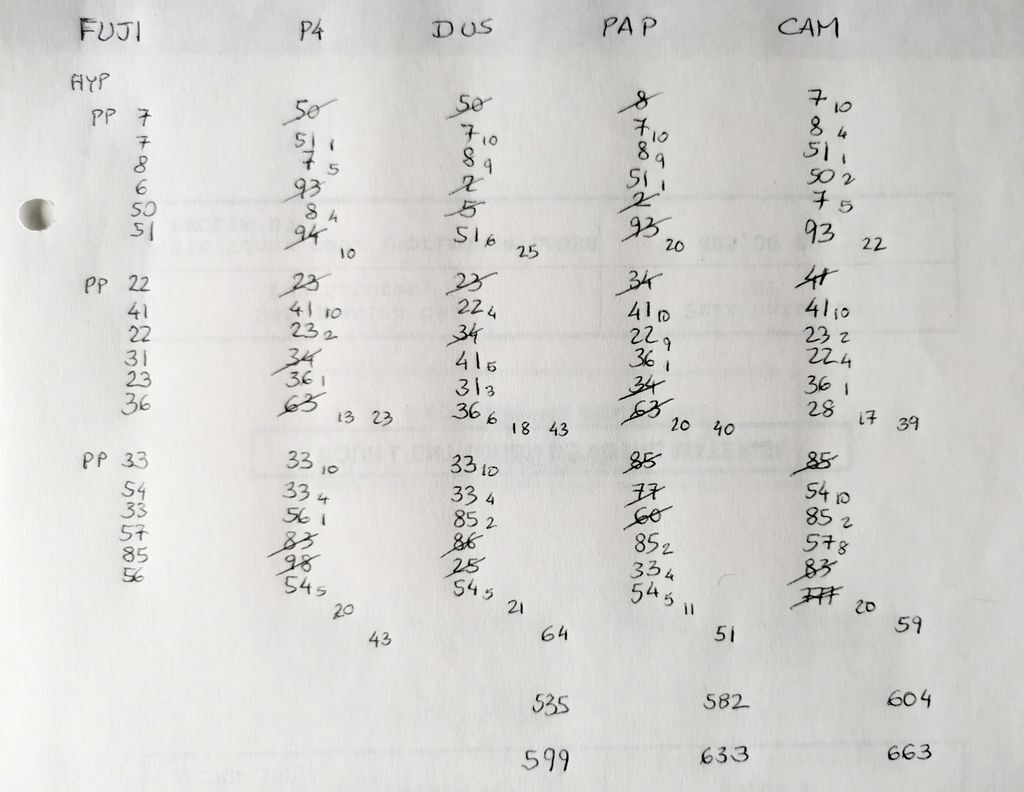 FUJI P4 DUS PAP CAM
HYP
PP 7 50 50 8 7 10
7 51 1 7 10 7 10 8 4
8 7 5 8 9 8 9 51 1
6 93 2 51 1 50 2
50 8 4 5 2 7 5
51 94 10 51 6 25 93 20 93 22
PP 22 23 23 34 41
41 41 10 22 4 41 10 41 10
22 23 2 34 22 9 23 2
31 34 41 5 36 1 22 4
23 36 1 31 3 34 36 1
36 63 13 23 36 6 18 43 63 20 40 28 17 39
PP 33 33 10 33 10 85 85
54 33 4 33 4 77 54 10
33 56 1 85 2 60 85 2
57 83 86 85 2 57 8
85 98 25 33 4 83
56 54 5 20 54 5 21 54 5 11 20
43 64 51 59
535 582 604
599 633 663